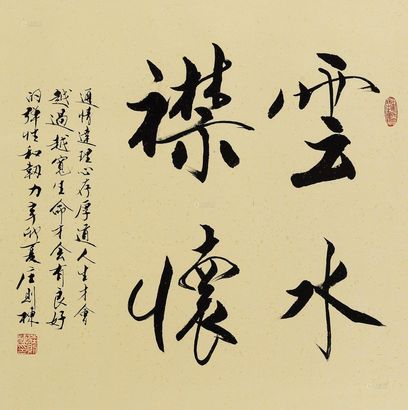 雲水
襟懷
通情達理心存厚道人生才會
越過越寬生命才會有良好
的弹性和韌力辛卯夏庄則棟